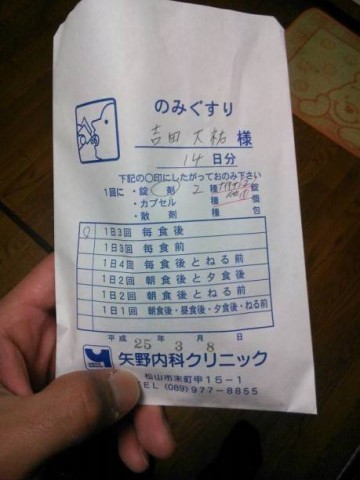 のみぐすり
吉田大祐 様
14 日分
下記の○印にしたがっておのみ下さい
1回に ・錠 剤 2 種 錠
・カプセル 種 個
・散 剤 種 包
1日3回 毎食後
1日3回 毎食前
1日4回 毎食後とねる前
1日2回 朝食後と夕食後
1日2回 朝食後とねる前
1日1回 朝食後・昼食後・夕食後・ねる前
平成 25 年 3 月 8 日
矢野内科クリニック
松山市末町甲15-1
TEL (089)977-8855